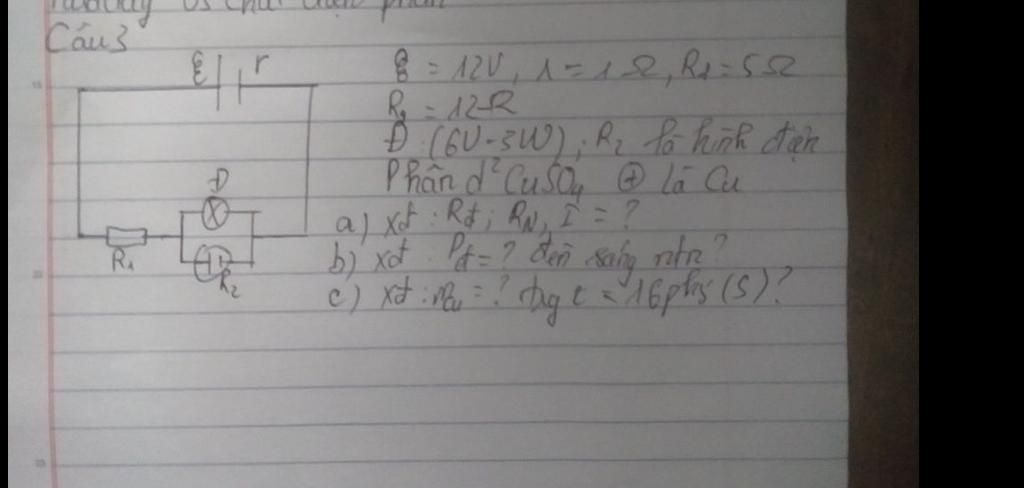 Câu 3
ξ r
ξ = 12V, r = 1Ω, R1 = 5Ω
R2 = 12Ω
Đ (6V-3W); R2 là bình điện
Phân d² CuSO4 ⊕ là Cu
Đ
a) xđ : Rđ; RN, I = ?
R1
b) xđ : Pđ = ? đèn sáng ntn?
R2
c) xđ : mCu = ? tng t = 16phs (S)?